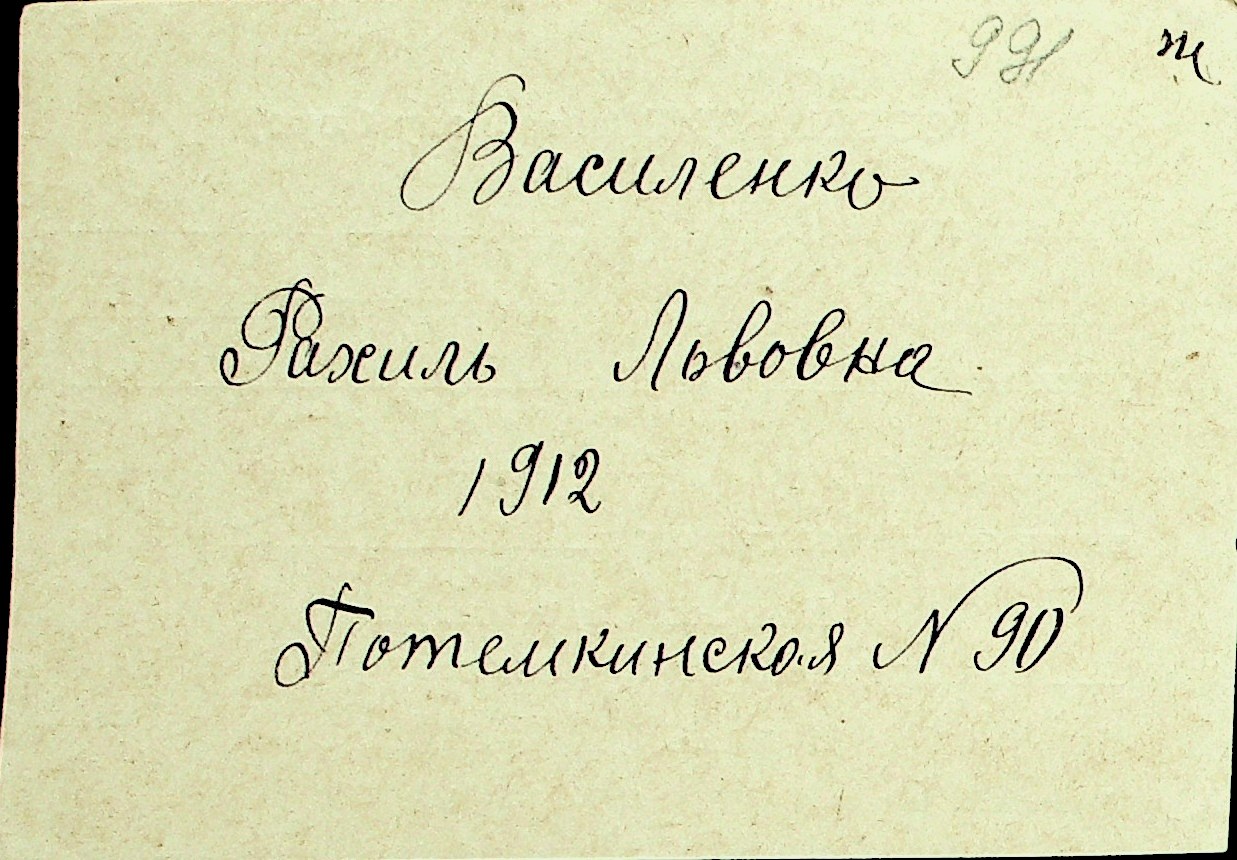 Василенко
Рахиль Львовна
1912
Потемкинская N 90